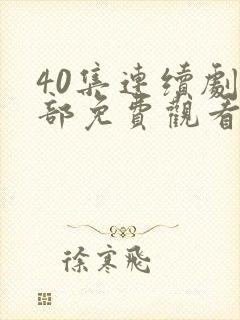 40集連續劇
部免費觀看
徐寒飛